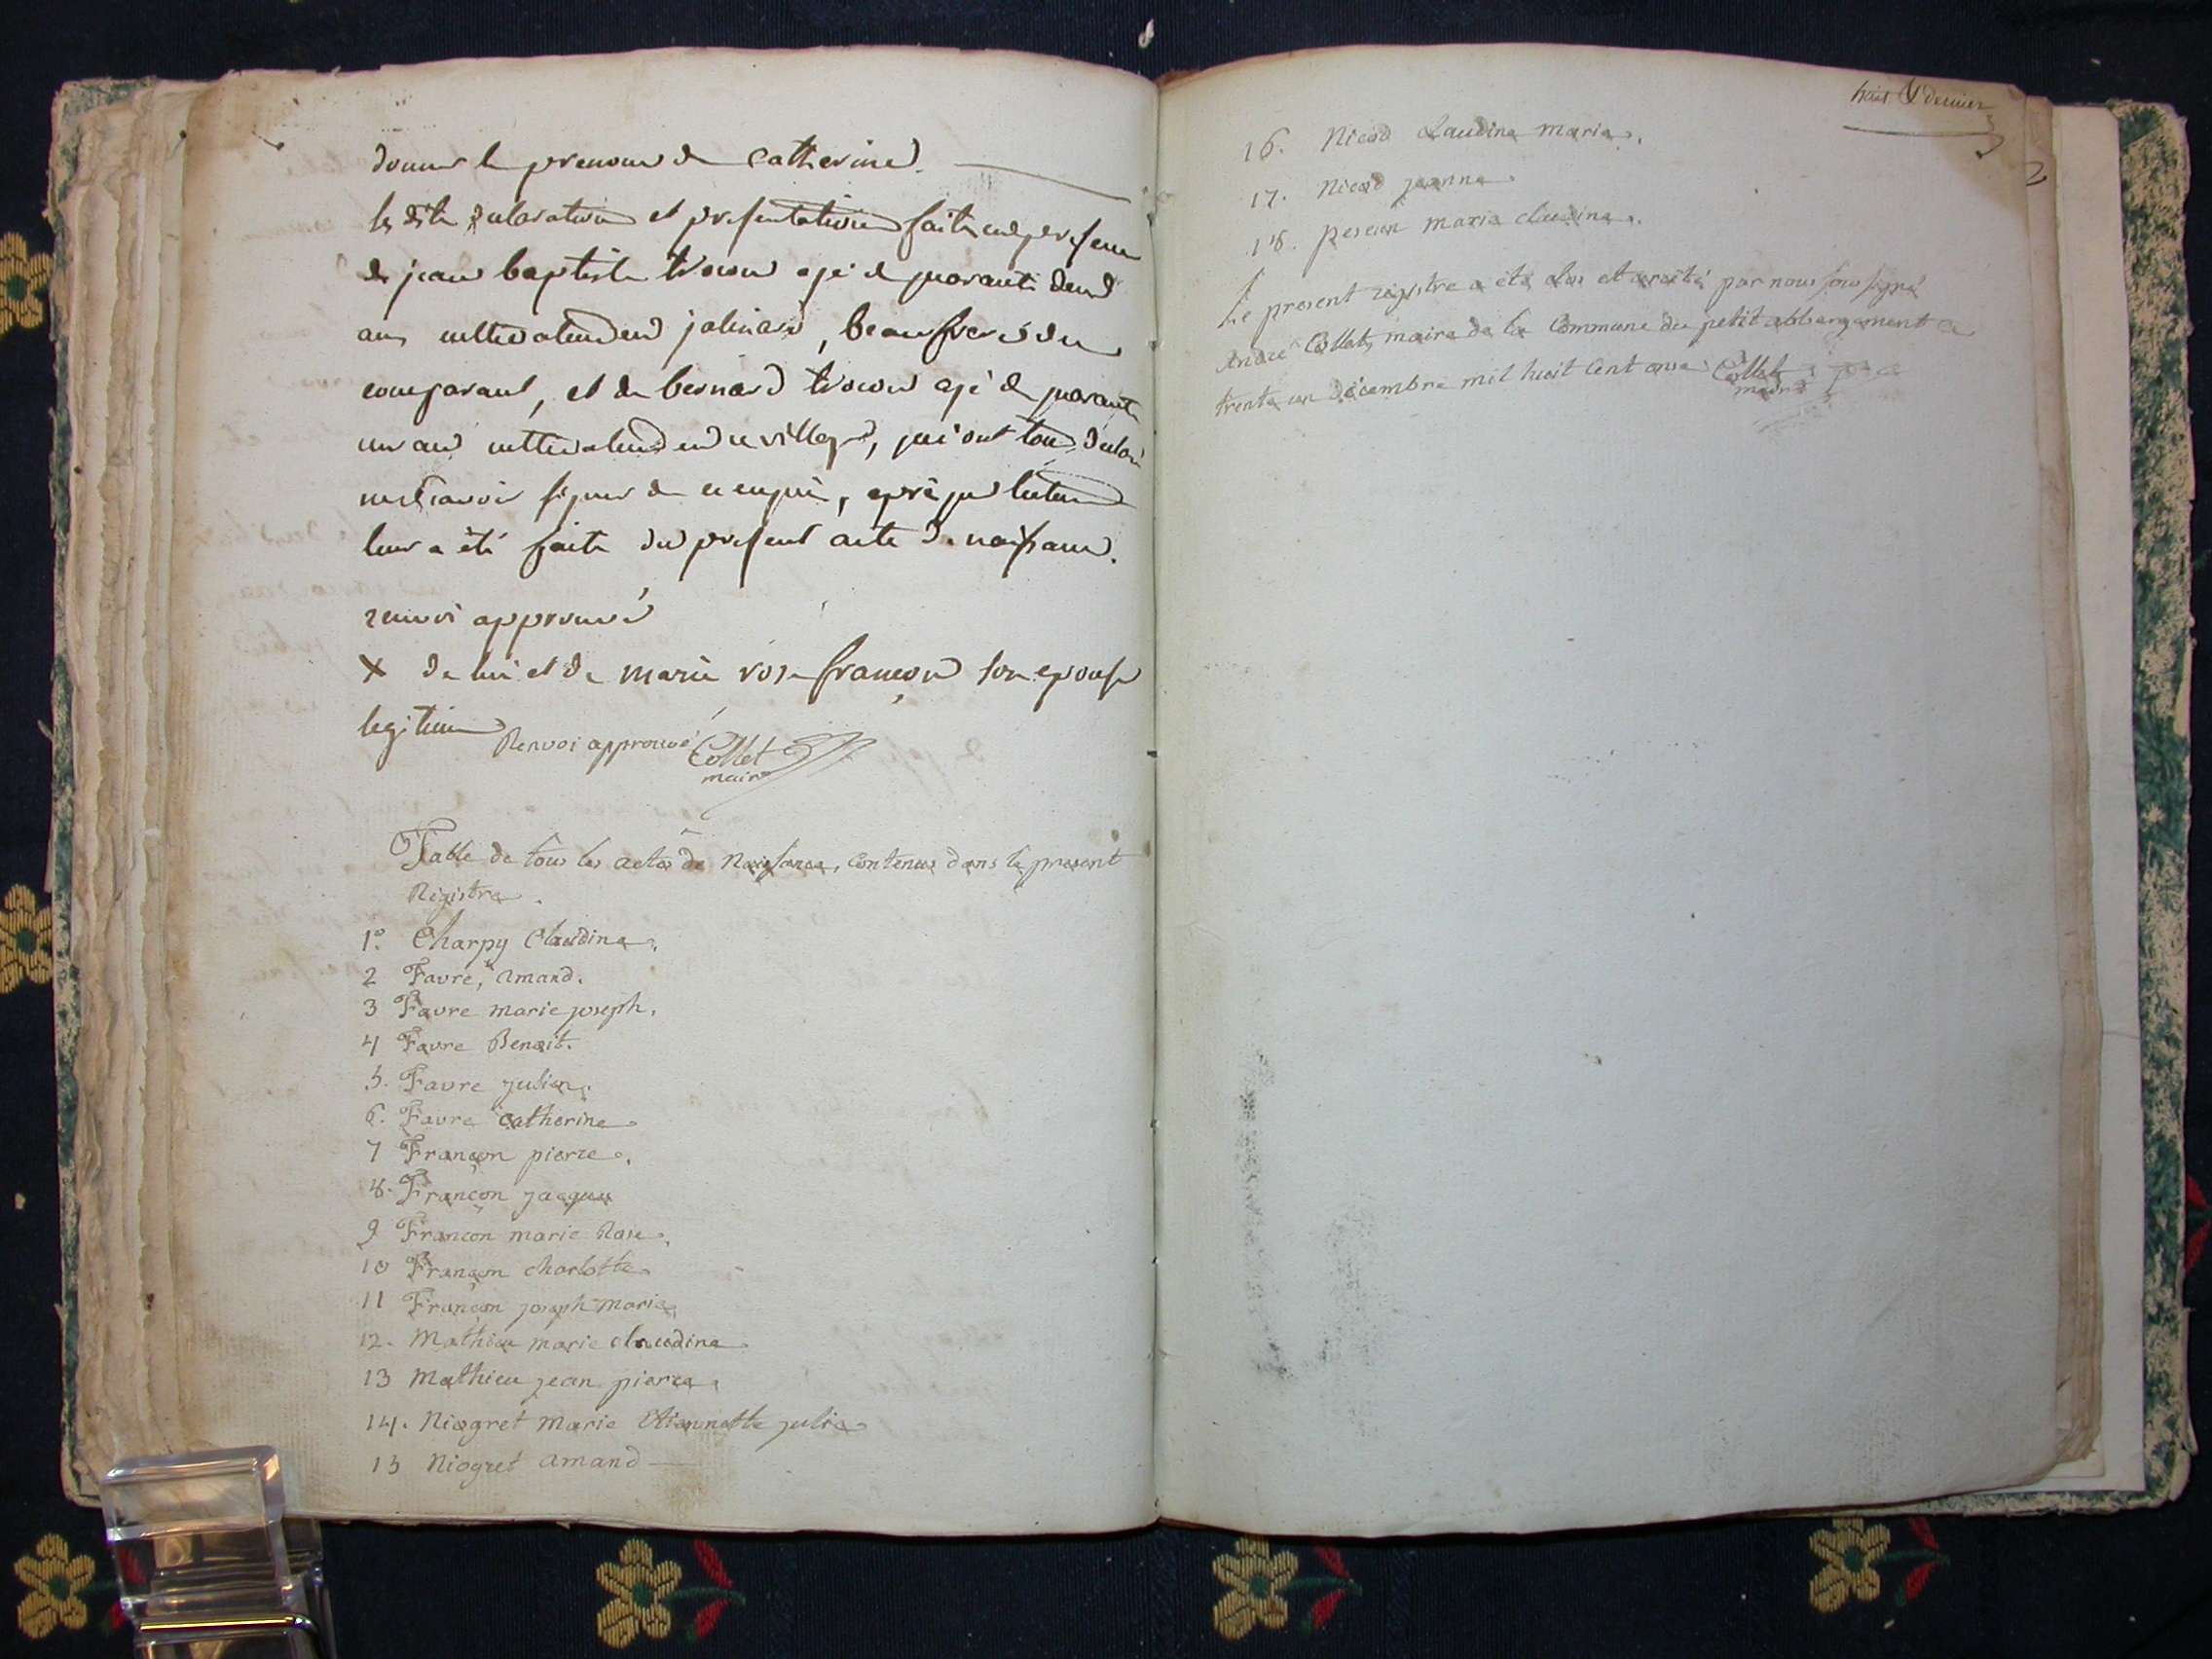 donner le prenom de Catherine.
les dite declaration et presentation faite en presence
de jean baptiste trocon agé de quarante deux
ans cultivateur en jalinard, beaufrere du
comparant, et de bernard trocon agé de quarante
un ans cultivateur en ce village, qui ont tous declaré
ne scavoir signer de ce enquis, après que lecture
leur a été faite du present acte de naissance.
renvoi approuvé
X de lui et de marie rose françon son epouse
legitime Renvoi approuvé Collet
maire
Table de tous les actes de Naissance, Contenus dans le present
Registre.
1° Charpy Claudine.
2 Favre, amand.
3 Favre marie joseph.
4 Favre Benoit.
5. Favre julien.
6. Favre Catherine
7 Françon pierre.
8. Françon jacques
9 Françon marie Rose.
10 Françon charlotte
11 Françon joseph marie
12. Mathieu marie claudine
13 Mathieu jean pierre
14. Niogret Marie Etiennette julie
15 Niogret amand
huit & dernier
16. Nicod Claudine marie.
17. Nicod jeanne
18. maria claudine.
Le present registre a été clos et arreté par nous soussigné
André Collet, maire de la Commune du petit abbergement ce
trente un Décembre mil huit Cent onze Collet
maire